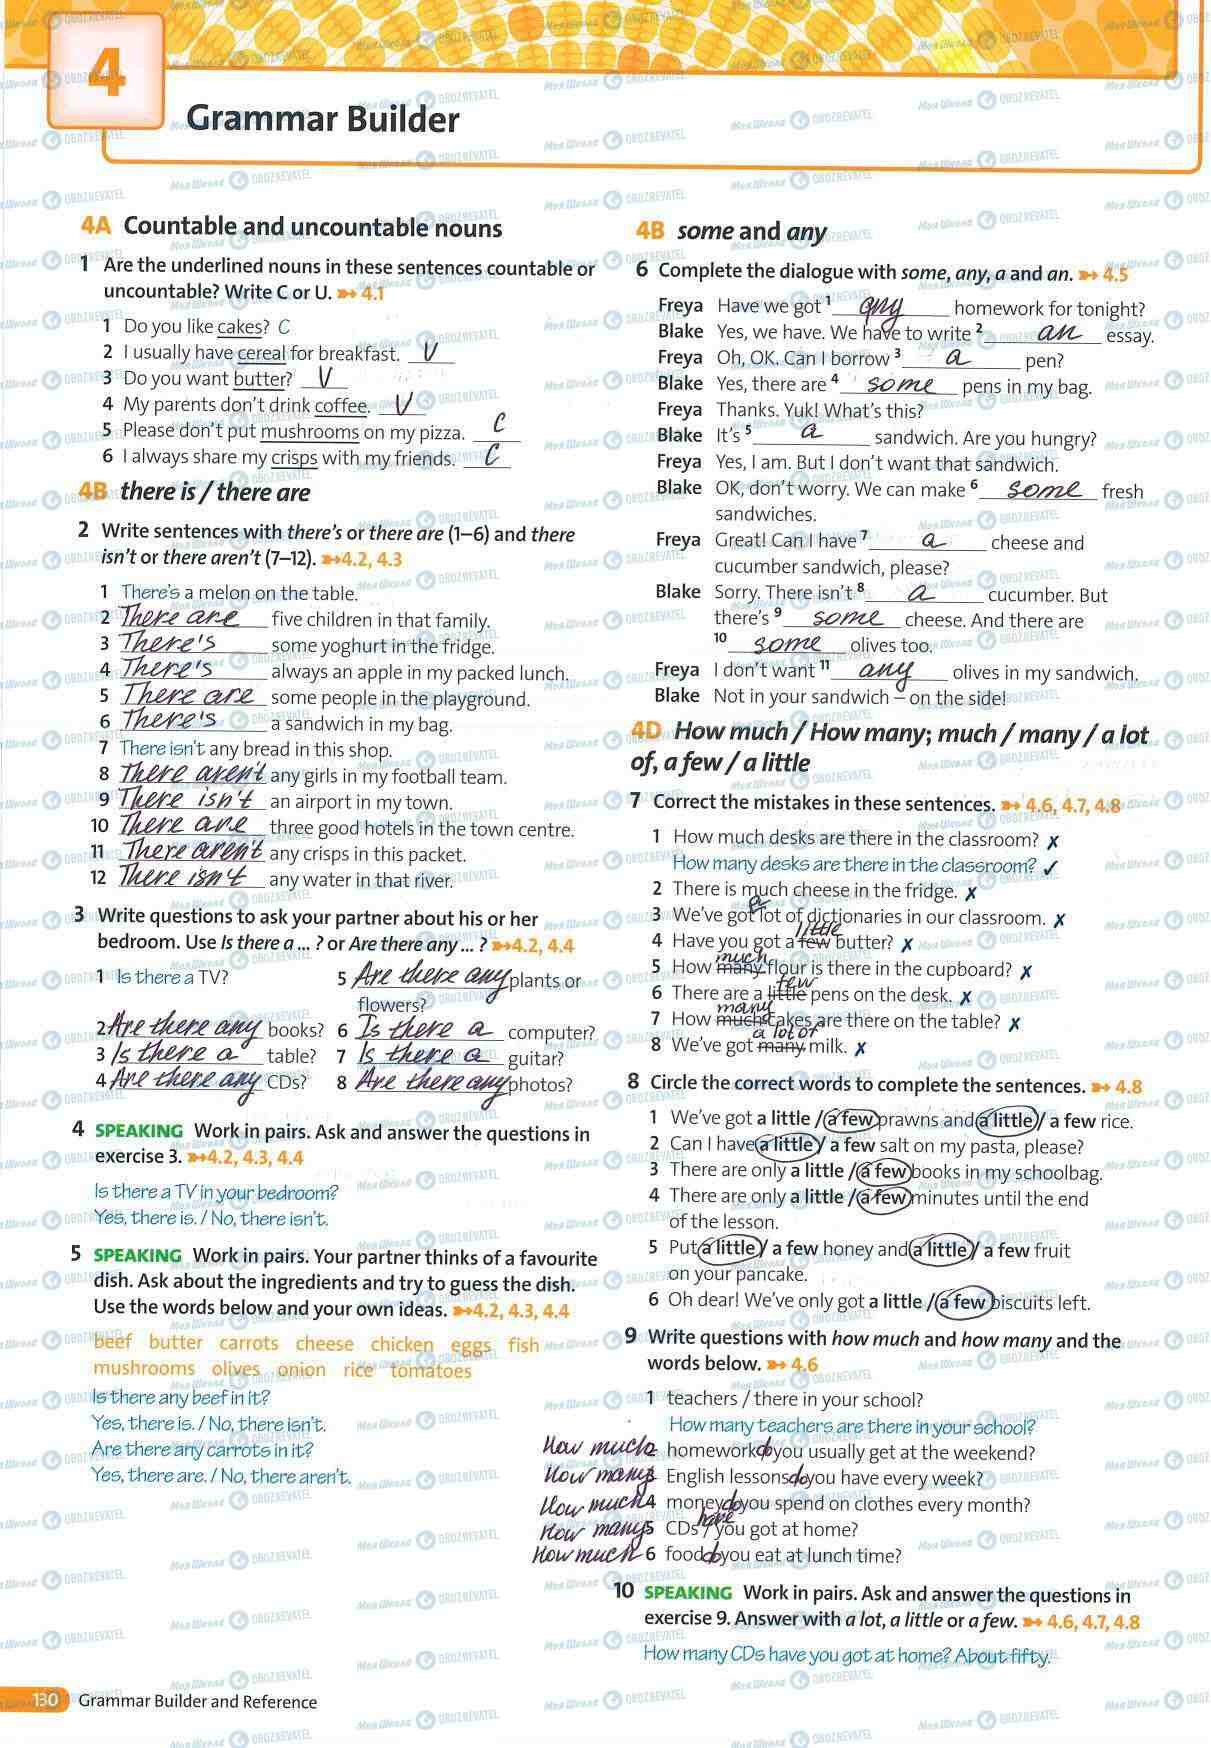 4
Grammar Builder
4A Countable and uncountable nouns
1 Are the underlined nouns in these sentences countable or
uncountable? Write C or U. ➻ 4.1
1 Do you like cakes? C
2 I usually have cereal for breakfast. U
3 Do you want butter? U
4 My parents don't drink coffee. U
5 Please don't put mushrooms on my pizza. C
6 I always share my crisps with my friends. C
4B there is / there are
2 Write sentences with there's or there are (1–6) and there
isn't or there aren't (7–12). ➻ 4.2, 4.3
1 There's a melon on the table.
2 There are five children in that family.
3 There's some yoghurt in the fridge.
4 There's always an apple in my packed lunch.
5 There are some people in the playground.
6 There's a sandwich in my bag.
7 There isn't any bread in this shop.
8 There aren't any girls in my football team.
9 There isn't an airport in my town.
10 There are three good hotels in the town centre.
11 There aren't any crisps in this packet.
12 There isn't any water in that river.
3 Write questions to ask your partner about his or her
bedroom. Use Is there a ... ? or Are there any ... ? ➻ 4.2, 4.4
1 Is there a TV?
2 Are there any books?
3 Is there a table?
4 Are there any CDs?
5 Are there any plants or
flowers?
6 Is there a computer?
7 Is there a guitar?
8 Are there any photos?
4 SPEAKING Work in pairs. Ask and answer the questions in
exercise 3. ➻ 4.2, 4.3, 4.4
Is there a TV in your bedroom?
Yes, there is. / No, there isn't.
5 SPEAKING Work in pairs. Your partner thinks of a favourite
dish. Ask about the ingredients and try to guess the dish.
Use the words below and your own ideas. ➻ 4.2, 4.3, 4.4
beef butter carrots cheese chicken eggs fish
mushrooms olives onion rice tomatoes
Is there any beef in it?
Yes, there is. / No, there isn't.
Are there any carrots in it?
Yes, there are. / No, there aren't.
4B some and any
6 Complete the dialogue with some, any, a and an. ➻ 4.5
Freya Have we got 1 any homework for tonight?
Blake Yes, we have. We have to write 2 an essay.
Freya Oh, OK. Can I borrow 3 a pen?
Blake Yes, there are 4 some pens in my bag.
Freya Thanks. Yuk! What's this?
Blake It's 5 a sandwich. Are you hungry?
Freya Yes, I am. But I don't want that sandwich.
Blake OK, don't worry. We can make 6 some fresh
sandwiches.
Freya Great! Can I have 7 a cheese and
cucumber sandwich, please?
Blake Sorry. There isn't 8 a cucumber. But
there's 9 some cheese. And there are
10 some olives too.
Freya I don't want 11 any olives in my sandwich.
Blake Not in your sandwich – on the side!
4D How much / How many; much / many / a lot
of, a few / a little
7 Correct the mistakes in these sentences. ➻ 4.6, 4.7, 4.8
1 How much desks are there in the classroom? ✗
How many desks are there in the classroom? ✓
2 There is much cheese in the fridge. ✗
a
3 We've got lot of dictionaries in our classroom. ✗
little
4 Have you got a few butter? ✗
much
5 How many flour is there in the cupboard? ✗
few
6 There are a little pens on the desk. ✗
many
7 How much cakes are there on the table? ✗
a lot of
8 We've got many milk. ✗
8 Circle the correct words to complete the sentences. ➻ 4.8
1 We've got a little / a few prawns and a little / a few rice.
2 Can I have a little / a few salt on my pasta, please?
3 There are only a little / a few books in my schoolbag.
4 There are only a little / a few minutes until the end
of the lesson.
5 Put a little / a few honey and a little / a few fruit
on your pancake.
6 Oh dear! We've only got a little / a few biscuits left.
9 Write questions with how much and how many and the
words below. ➻ 4.6
1 teachers / there in your school?
How many teachers are there in your school?
How much 2 homework do you usually get at the weekend?
How many 3 English lessons do you have every week?
How much 4 money do you spend on clothes every month?
have
How many 5 CDs / you got at home?
How much 6 food do you eat at lunch time?
10 SPEAKING Work in pairs. Ask and answer the questions in
exercise 9. Answer with a lot, a little or a few. ➻ 4.6, 4.7, 4.8
How many CDs have you got at home? About fifty.
130 Grammar Builder and Reference
Моя Школа OBOZREVATEL